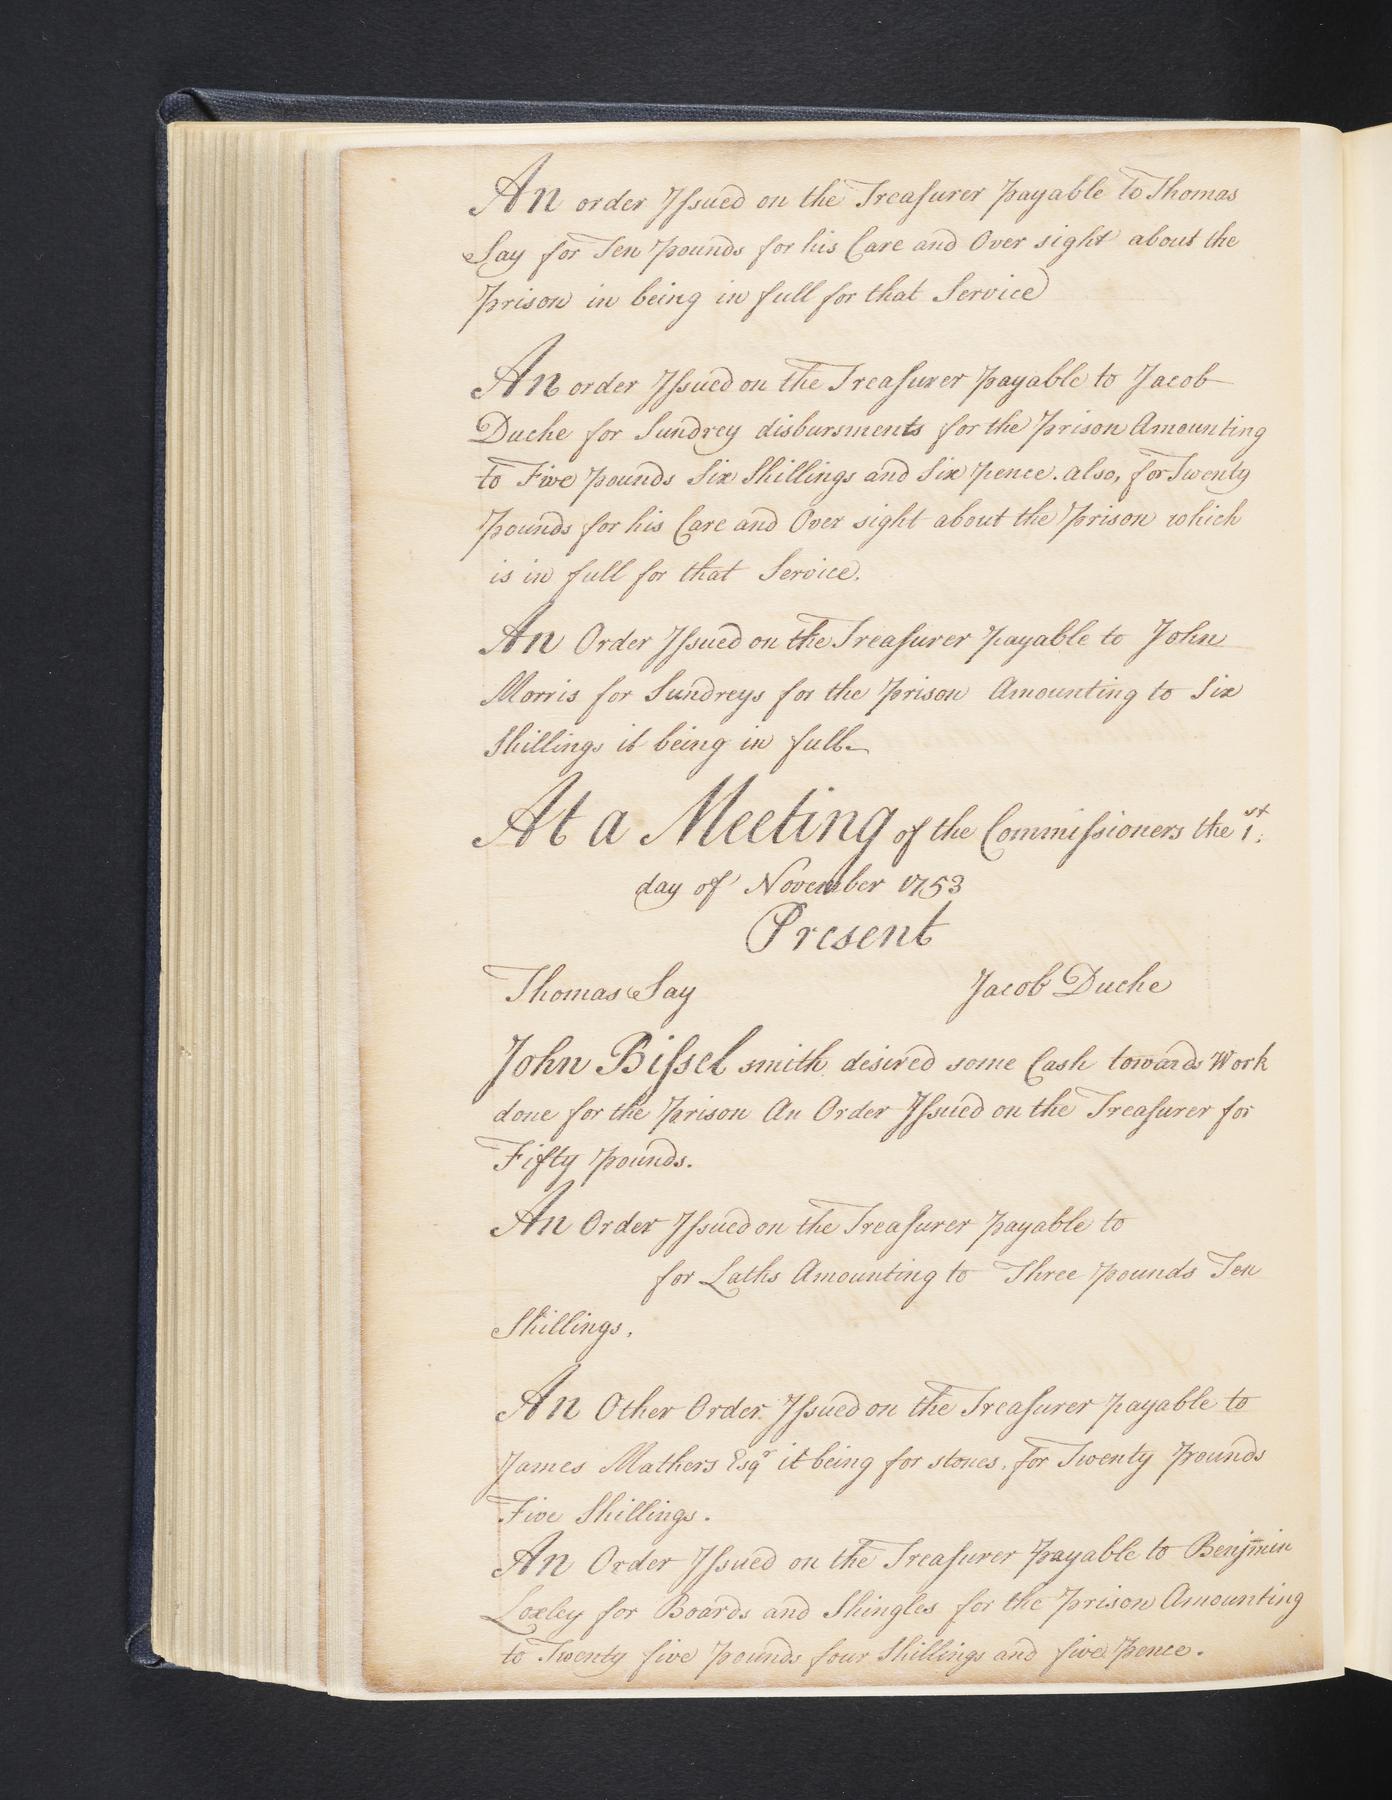 An order Issued on the Treasurer payable to Thomas
Say for Ten pounds for his Care and Over sight about the
prison in being in full for that Service
An order Issued on the Treasurer payable to Jacob
Duche for Sundrey disbursments for the prison Amounting
to Five pounds Six Shillings and Six pence. also, for Twenty
pounds for his Care and Over sight about the prison which
is in full for that Service.
An Order Issued on the Treasurer payable to John
Morris for Sundreys for the prison Amounting to Six
Shillings it being in full
At a Meeting of the Commissioners the 1st
day of November 1753
Present
Thomas Say Jacob Duche
John Bissel smith desired some Cash towards Work
done for the prison An Order Issued on the Treasurer for
Fifty pounds.
An Order Issued on the Treasurer payable to
for Laths Amounting to Three pounds Ten
Shillings.
An Other Order Issued on the Treasurer payable to
James Mathers Esqr it being for stones, for Twenty pounds
Five Shillings.
An Order Issued on the Treasurer payable to Benjmin
Loxley for Boards and Shingles for the prison Amounting
to Twenty five pounds four Shillings and five pence.